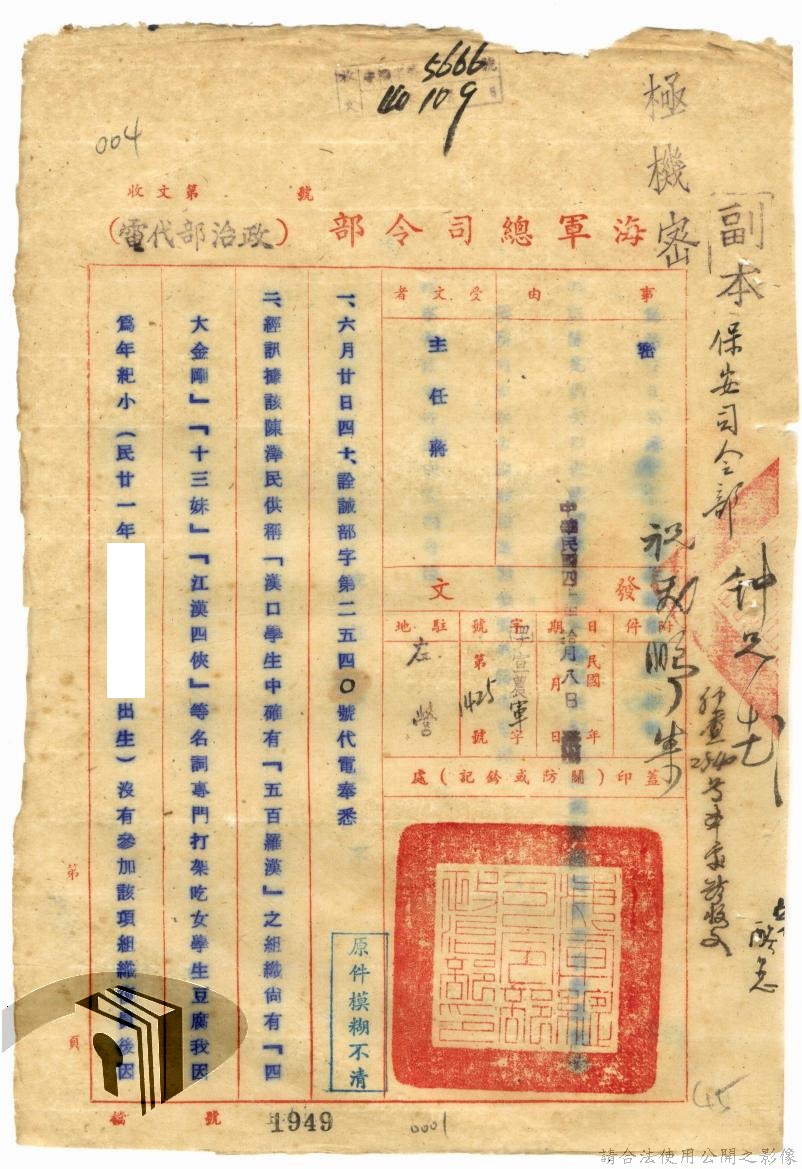 5666
40 10 9
004
極機密
副本
保安司令部
收文第 號
海軍總司令部(政治部代電)
事由
受文者
密
主任蔣
發文
附件
日期
字號
駐地
民國 年 月 日
中華民國四
月八日
宣農軍字
第1425號
左營
蓋印(關防或鈐記)處
一、六月廿日四十、詮誠部字第二五四〇號代電奉悉
二、經訊據該陳澤民供稱「漢口學生中確有『五百羅漢』之組織尚有『四
大金剛』『十三妹』『江漢四俠』等名詞專門打架吃女學生豆腐我因
為年紀小(民廿一年 出生)沒有參加該項組織 後因
原件模糊不清
第 頁
檔號
1949
0001
45
請合法使用公開之影像